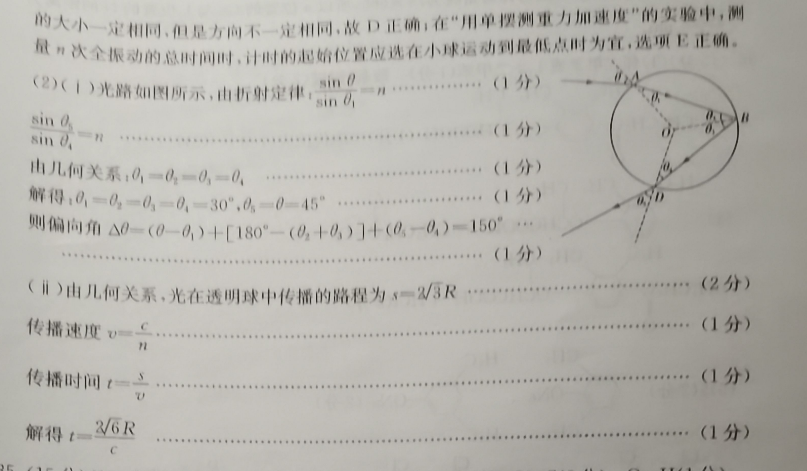 的大小一定相同,但是方向不一定相同,故D正确;在“用单摆测重力加速度”的实验中,测
量n次全振动的总时间时,计时的起始位置应选在小球运动到最低点时为宜,选项E正确。
(2)(ⅰ)光路如图所示,由折射定律:sin θ/sin θ₁=n ……………(1分)
sin θ₅/sin θ₄=n ……………(1分)
由几何关系:θ₁=θ₂=θ₃=θ₄ ……………(1分)
解得:θ₁=θ₂=θ₃=θ₄=30°,θ₅=θ=45° ……………(1分)
则偏向角Δθ=(θ-θ₁)+[180°-(θ₂+θ₃)]+(θ₅-θ₄)=150° …
……………(1分)
(ⅱ)由几何关系,光在透明球中传播的路程为s=2√3R ……………(2分)
传播速度v=c/n ……………(1分)
传播时间t=s/v ……………(1分)
解得t=2√6R/c ……………(1分)
θ A
θ₁
θ₂ B
O θ₃
θ₄
θ₅ D